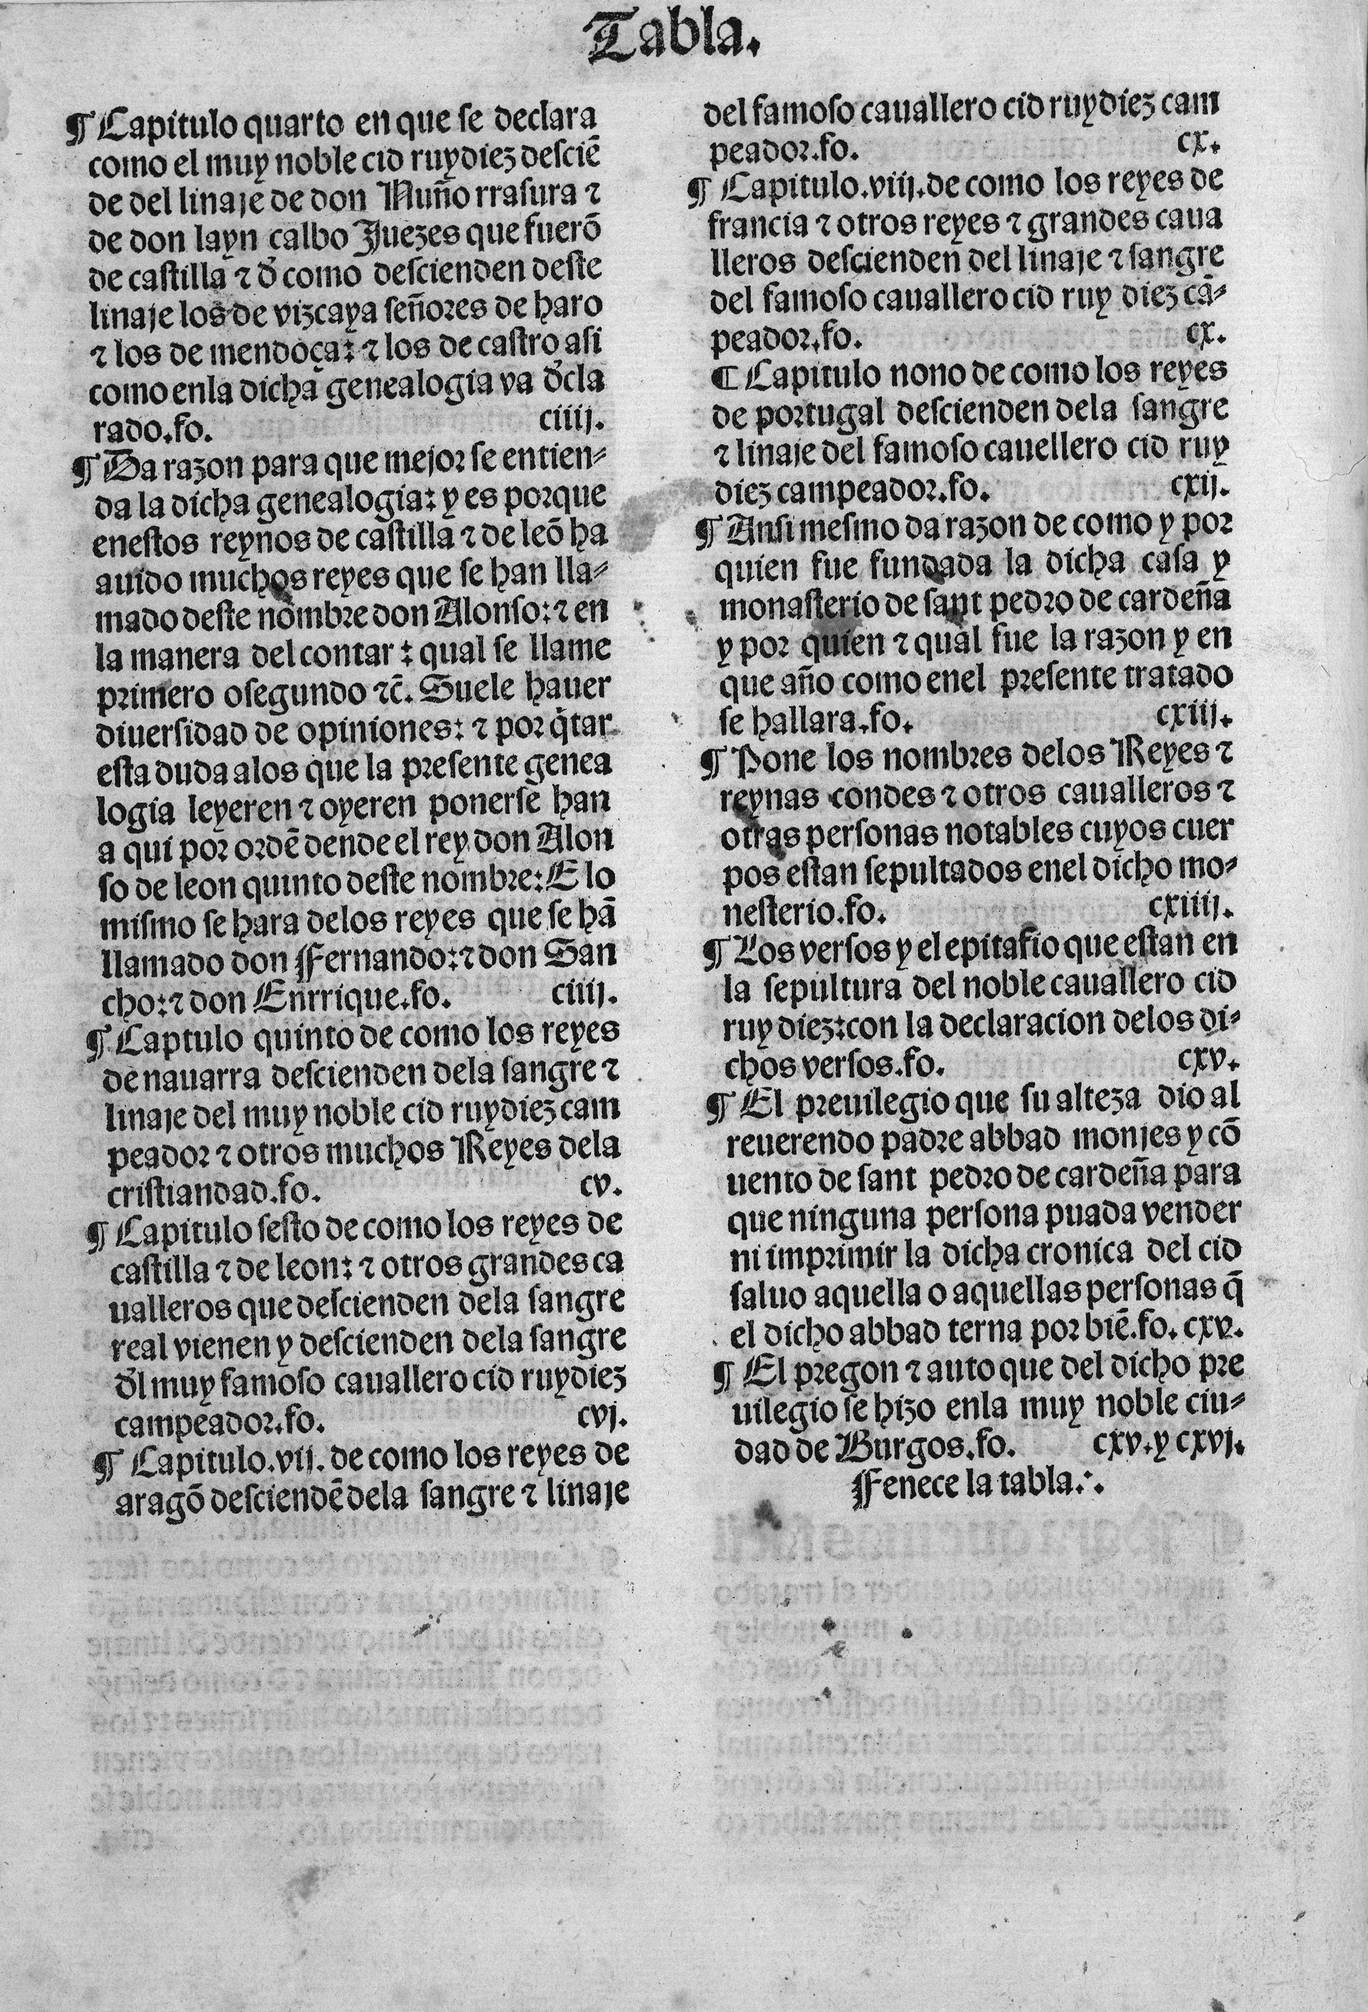 Tabla.
¶ Capitulo quarto en que se declara
como el muy noble cid ruydiez desciē
de del linaje de don Nuño rrasura ⁊
de don layn calbo Juezes que fuerō
de castilla ⁊ đ como descienden deste
linaje los de vizcaya señores de haro
⁊ los de mendoça: ⁊ los de castro asi
como enla dicha genealogia va đcla
rado.fo. ciiij.
¶ Da razon para que mejor se entien-
da la dicha genealogia: y es porque
enestos reynos de castilla ⁊ de leō ha
auido muchos reyes que se han lla-
mado deste nombre don Alonso: ⁊ en
la manera del contar : qual se llame
primero osegundo ⁊c̄. Suele hauer
diuersidad de opiniones: ⁊ por q̄tar
esta duda alos que la presente genea
logia leyeren ⁊ oyeren ponerse han
a qui por ordē dende el rey don Alon
so de leon quinto deste nombre: E lo
mismo se hara delos reyes que se hā
llamado don Fernando: ⁊ don San
cho: ⁊ don Enrrique.fo. ciiij.
¶ Captulo quinto de como los reyes
de nauarra descienden dela sangre ⁊
linaje del muy noble cid ruydiez cam
peador ⁊ otros muchos Reyes dela
cristiandad.fo. cv.
¶ Capitulo sesto de como los reyes de
castilla ⁊ de leon: ⁊ otros grandes ca
ualleros que descienden dela sangre
real vienen y descienden dela sangre
đl muy famoso cauallero cid ruydiez
campeador.fo. cvj.
¶ Capitulo.vij. de como los reyes de
aragō desciendē dela sangre ⁊ linaje
del famoso cauallero cid ruydiez cam
peador.fo. cx.
¶ Capitulo.viij.de como los reyes de
francia ⁊ otros reyes ⁊ grandes caua
lleros descienden del linaje ⁊ sangre
del famoso cauallero cid ruy diez cā-
peador.fo. cx.
¶ Capitulo nono de como los reyes
de portugal descienden dela sangre
⁊ linaje del famoso cauellero cid ruy
diez campeador.fo. cxij.
¶ Ansi mesmo da razon de como y por
quien fue fundada la dicha casa y
monasterio de sant pedro de cardeña
y por quien ⁊ qual fue la razon y en
que año como enel presente tratado
se hallara.fo. cxiij.
¶ Pone los nombres delos Reyes ⁊
reynas condes ⁊ otros caualleros ⁊
otras personas notables cuyos cuer
pos estan sepultados enel dicho mo-
nesterio.fo. cxiiij.
¶ Los versos y el epitafio que estan en
la sepultura del noble cauallero cid
ruy diez:con la declaracion delos di-
chos versos.fo. cxv.
¶ El preuilegio que su alteza dio al
reuerendo padre abbad monjes y cō
uento de sant pedro de cardeña para
que ninguna persona puada vender
ni imprimir la dicha cronica del cid
saluo aquella o aquellas personas q̄
el dicho abbad terna por biē.fo. cxv.
¶ El pregon ⁊ auto que del dicho pre
uilegio se hizo enla muy noble ciu-
dad de Burgos.fo. cxv.y cxvj.
Fenece la tabla.:.